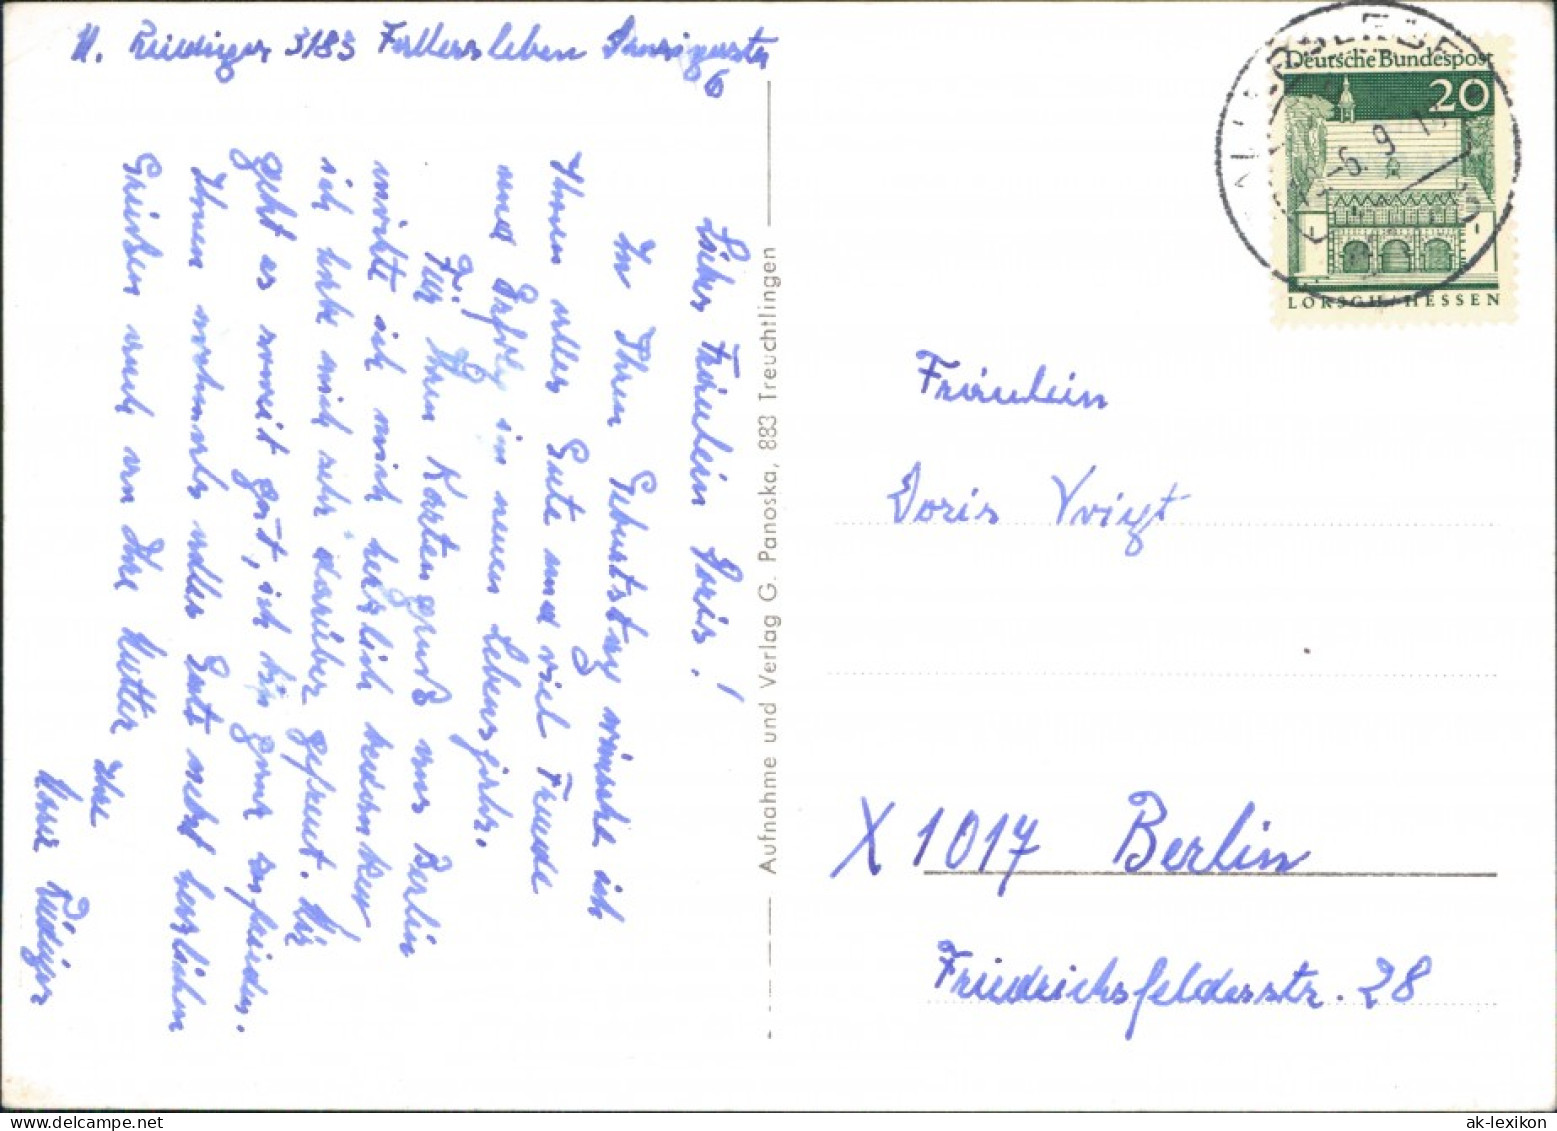 3183 Fallersleben Danzigerstr
6
Liebes Fräulein Doris!
In Ihren Geburtstag wünsche ich
Ihnen alles Gute und viel Freude
und Erfolg im neuen Lebensjahr.
Für Ihren Kartengruß aus Berlin
möchte ich mich herzlich bedanken
ich habe mich sehr darüber gefreut. Mir
geht es soweit gut, ich bin ganz zufrieden.
Ihnen nochmals alles Gute nebst herzlichen
Grüßen auch an Ihre Mutter
Ihre
Rüdiger
Aufnahme und Verlag G. Panoska, 883 Treuchtlingen
Deutsche Bundespost
20
LORSCH/HESSEN
-6. 9
Fräulein
Doris Voigt
X 1017 Berlin
Friedrichsfelderstr. 28
ak-lexikon.com